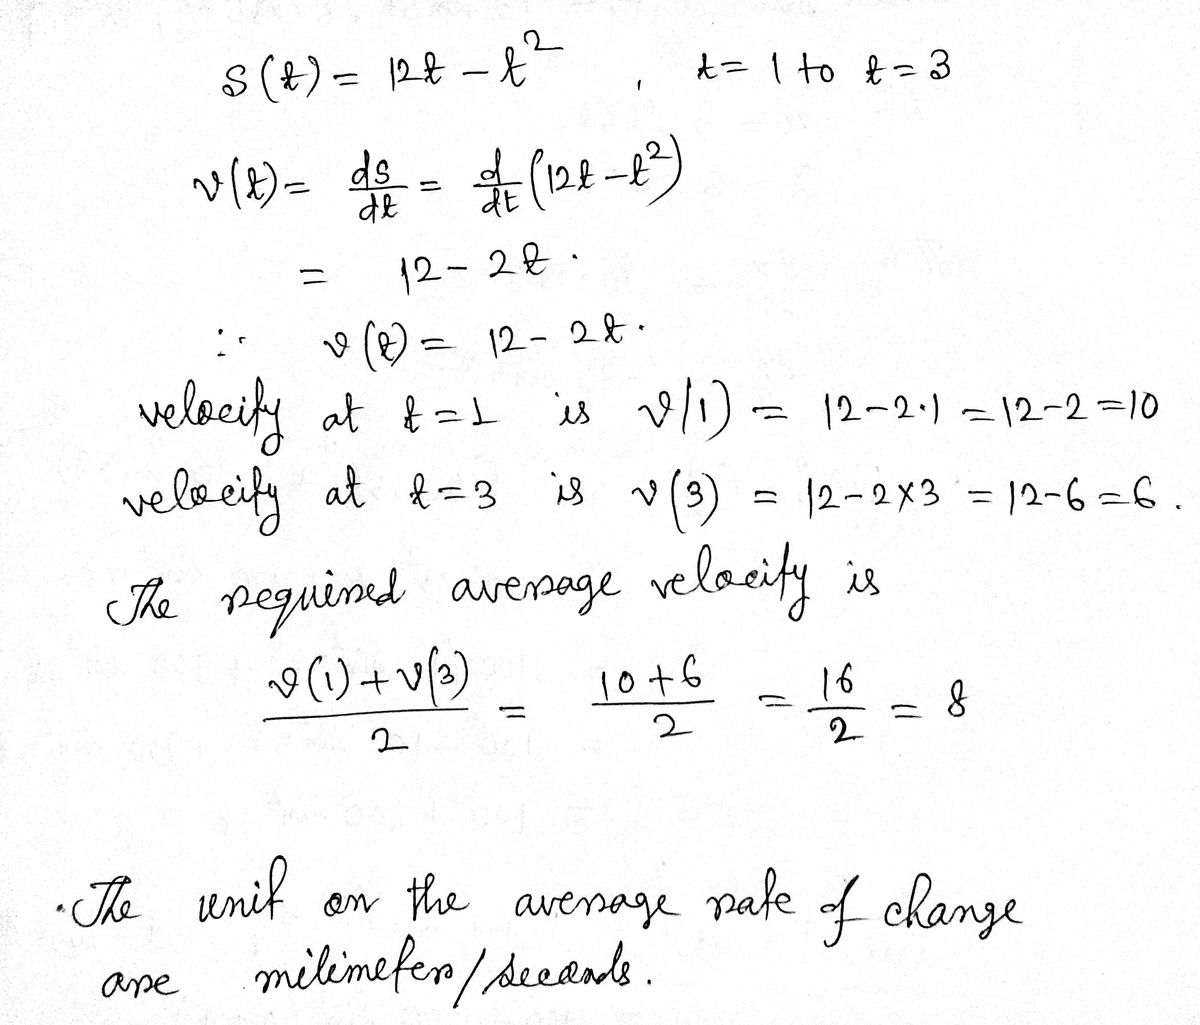 s(t) = 12t - t² , t = 1 to t = 3
v(t) = ds/dt = d/dt (12t - t²)
= 12 - 2t .
∴ v(t) = 12 - 2t .
velocity at t = 1 is v(1) = 12-2·1 = 12-2 = 10
velocity at t = 3 is v(3) = 12-2×3 = 12-6 = 6 .
The required average velocity is
(v(1) + v(3))/2 = (10+6)/2 = 16/2 = 8
· The unit on the average rate of change
are milimeter/seconds.